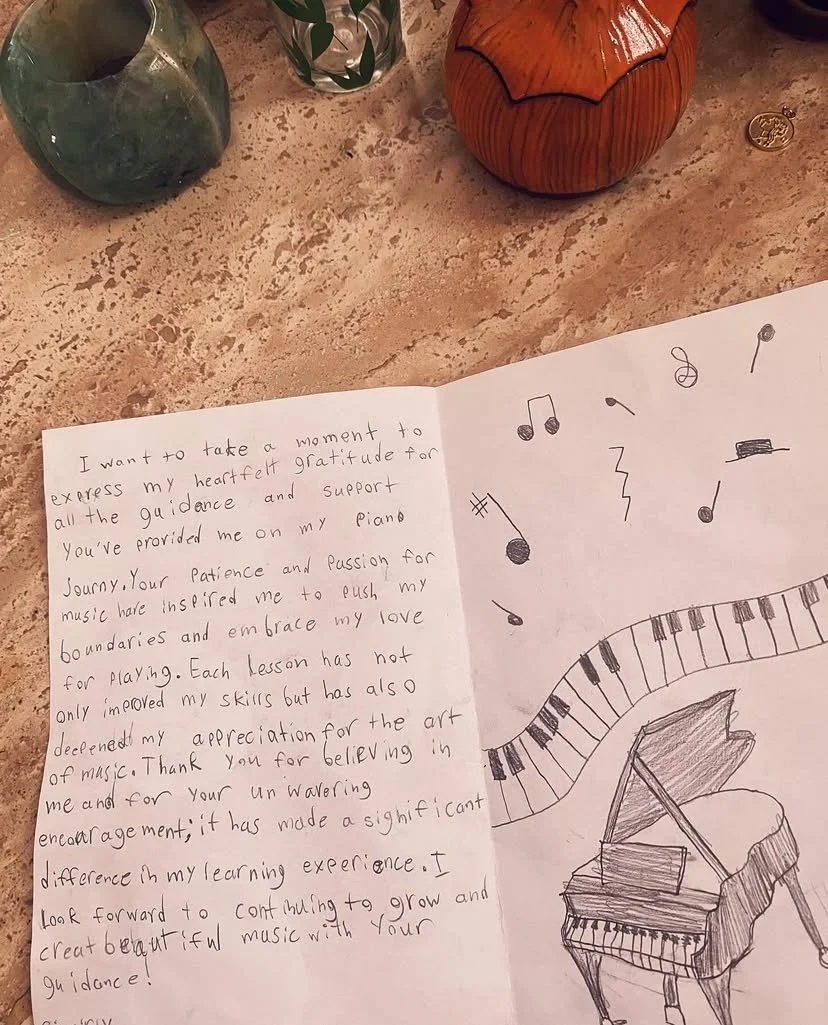 I want to take a moment to
express my heartfelt gratitude for
all the guidance and support
You've provided me on my piano
Journy. Your Patience and Passion for
music have inspired me to push my
boundaries and embrace my love
for playing. Each Lesson has not
only improved my skills but has also
deepened my appreciation for the art
of music. Thank You for believing in
me and for Your unwavering
encouragement; it has made a significant
difference in my learning experience. I
Look forward to continuing to grow and
creat beautiful music with Your
guidance!